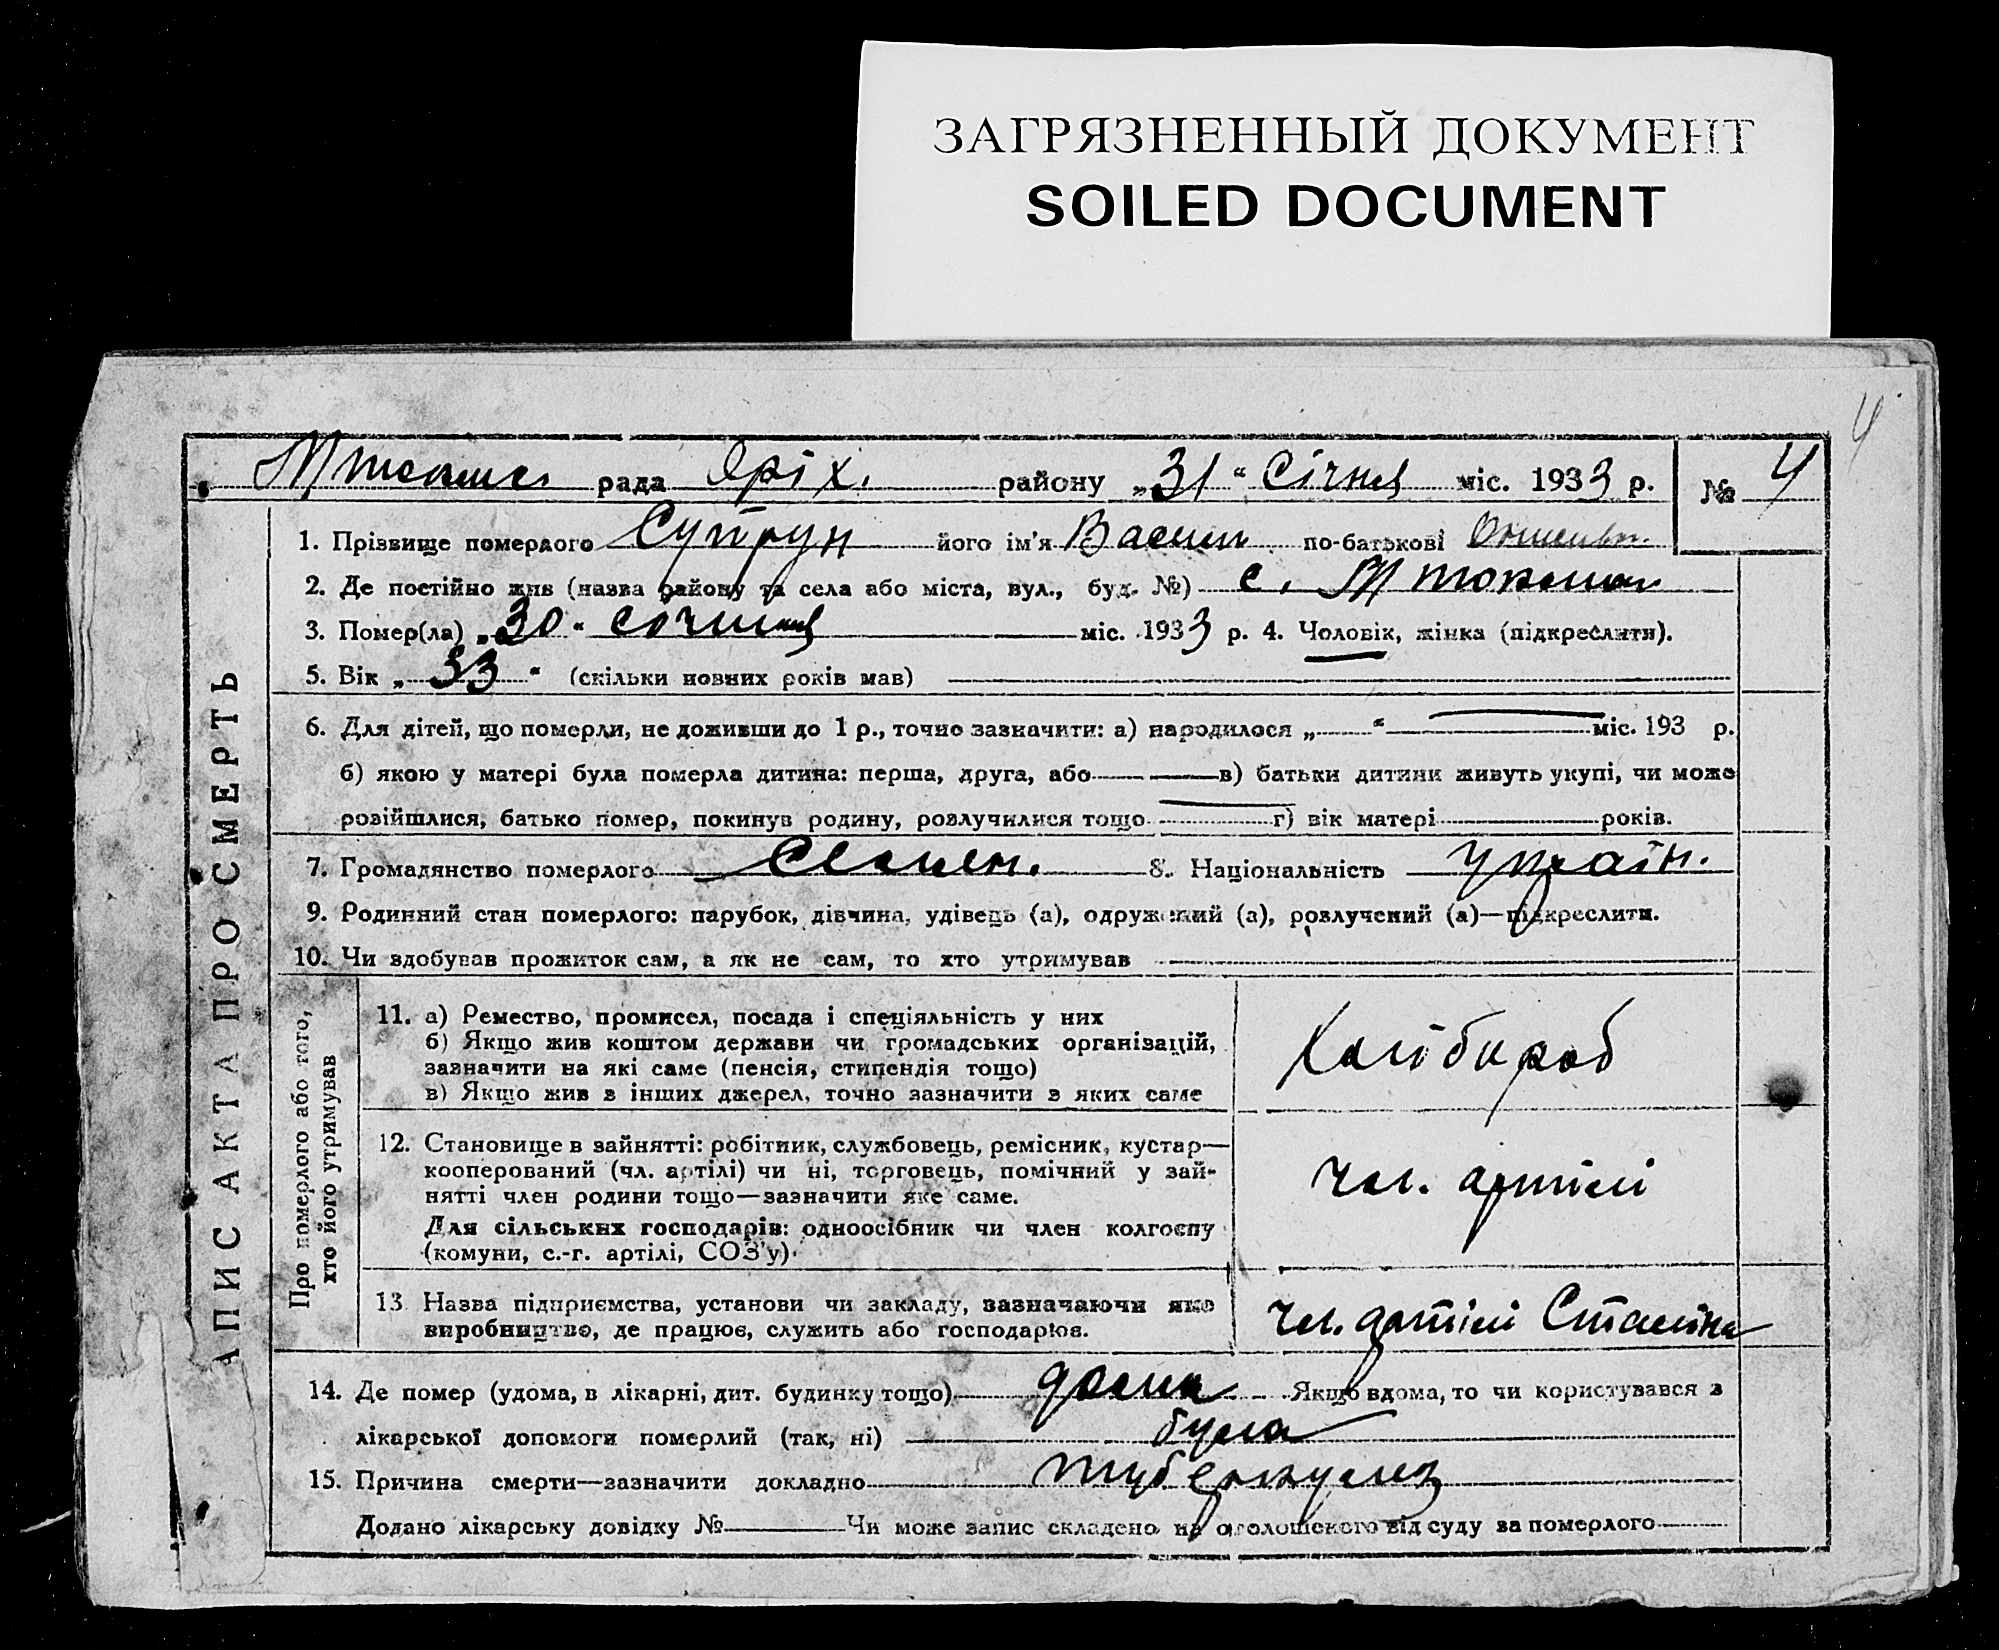 ЗАГРЯЗНЕННЫЙ ДОКУМЕНТ
SOILED DOCUMENT
4
рада Оріх. району „31“ Січня міс. 1933 р. № 4
АПИС АКТА ПРО СМЕРТЬ
1. Прізвище померлого Супрун його ім'я Василь по-батькові
2. Де постійно жив (назва району та села або міста, вул., буд. №) с.
3. Помер(ла) „30“ січня міс. 1933 р. 4. Чоловік, жінка (підкреслити).
5. Вік „33“ (скільки повних років мав)
6. Для дітей, що померли, не доживши до 1 р., точно зазначити: а) народилося „ “ міс. 193 р.
б) якою у матері була померла дитина: перша, друга, або в) батьки дитини живуть укупі, чи може
розійшлися, батько помер, покинув родину, розлучилися тощо г) вік матері років.
7. Громадянство померлого 8. Національність Україн.
9. Родинний стан померлого: парубок, дівчина, удівець (а), одружений (а), розлучений (а)—підкреслити.
10. Чи здобував прожиток сам, а як не сам, то хто утримував
Про померлого або того,
хто його утримував
11. а) Ремество, промисел, посада і спеціяльність у них
б) Якщо жив коштом держави чи громадських організацій,
зазначити на які саме (пенсія, стипендія тощо)
в) Якщо жив з інших джерел, точно зазначити з яких саме
Хлібороб
12. Становище в зайнятті: робітник, службовець, ремісник, кустар—
кооперований (чл. артілі) чи ні, торговець, помічний у зай-
нятті член родини тощо—зазначити яке саме.
Для сільських господарів: одноосібник чи член колгоспу
(комуни, с.-г. артілі, СОЗ'у)
Чл. артілі
13 Назва підприємства, установи чи закладу, зазначаючи яко
виробництво, де працює, служить або господарює.
Чл. артілі Сталіна
14. Де помер (удома, в лікарні, дит. будинку тощо) дома Якщо вдома, то чи користувався з
лікарської допомоги померлий (так, ні) була
15. Причина смерти—зазначити докладно туберкульоз
Додано лікарську довідку № Чи може запис складено на оголошеного від суду за померлого